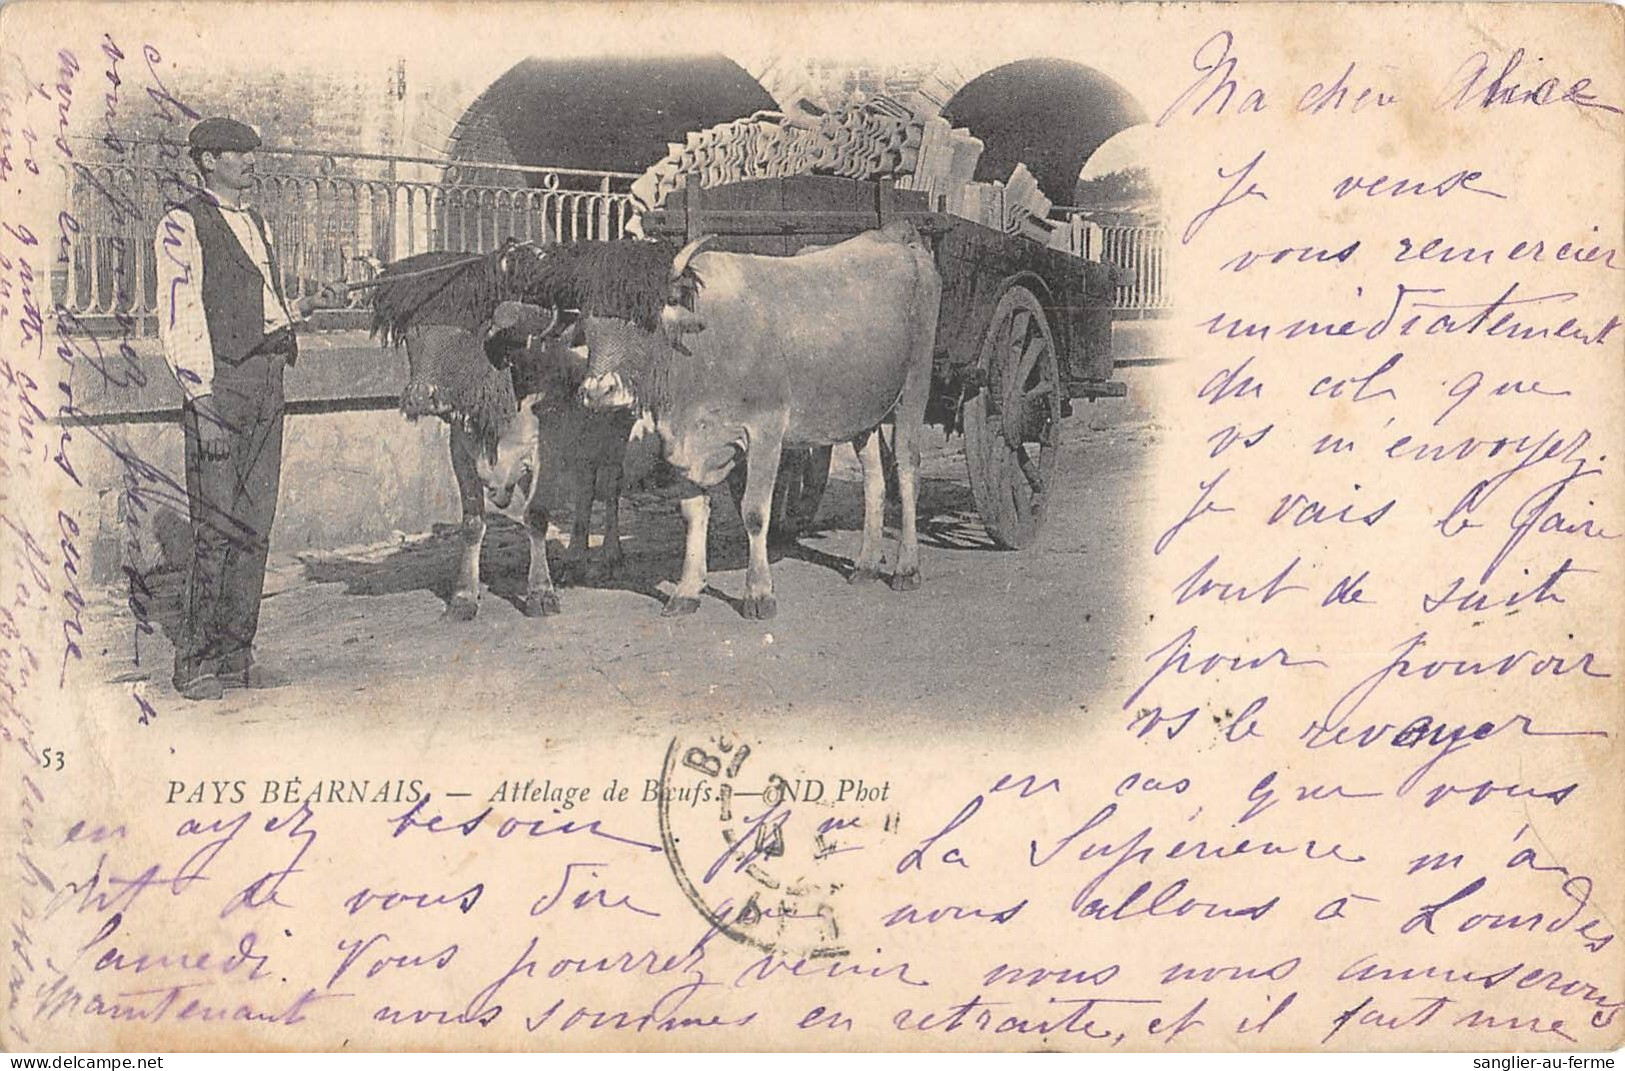 Ma cher Alice
Je veux
vous remercier
immédiatement
du col que
vs m'envoyez.
Je vais le faire
tout de suite
pour pouvoir
vs le revoyer
en cas que vous
53
PAYS BÉARNAIS. — Attelage de Bœufs. — ND Phot
en ayez besoin. Mme La Supérieure m'a
dit de vous dire que nous allons à Lourdes
Samedi. Vous pourrez venir nous nous amuserons
Maintenant nous sommes en retraite, et il fait une
chaleur
vous pouvez penser
nous en avons cuire
Je vs quitte chère
sanglier-au-ferme